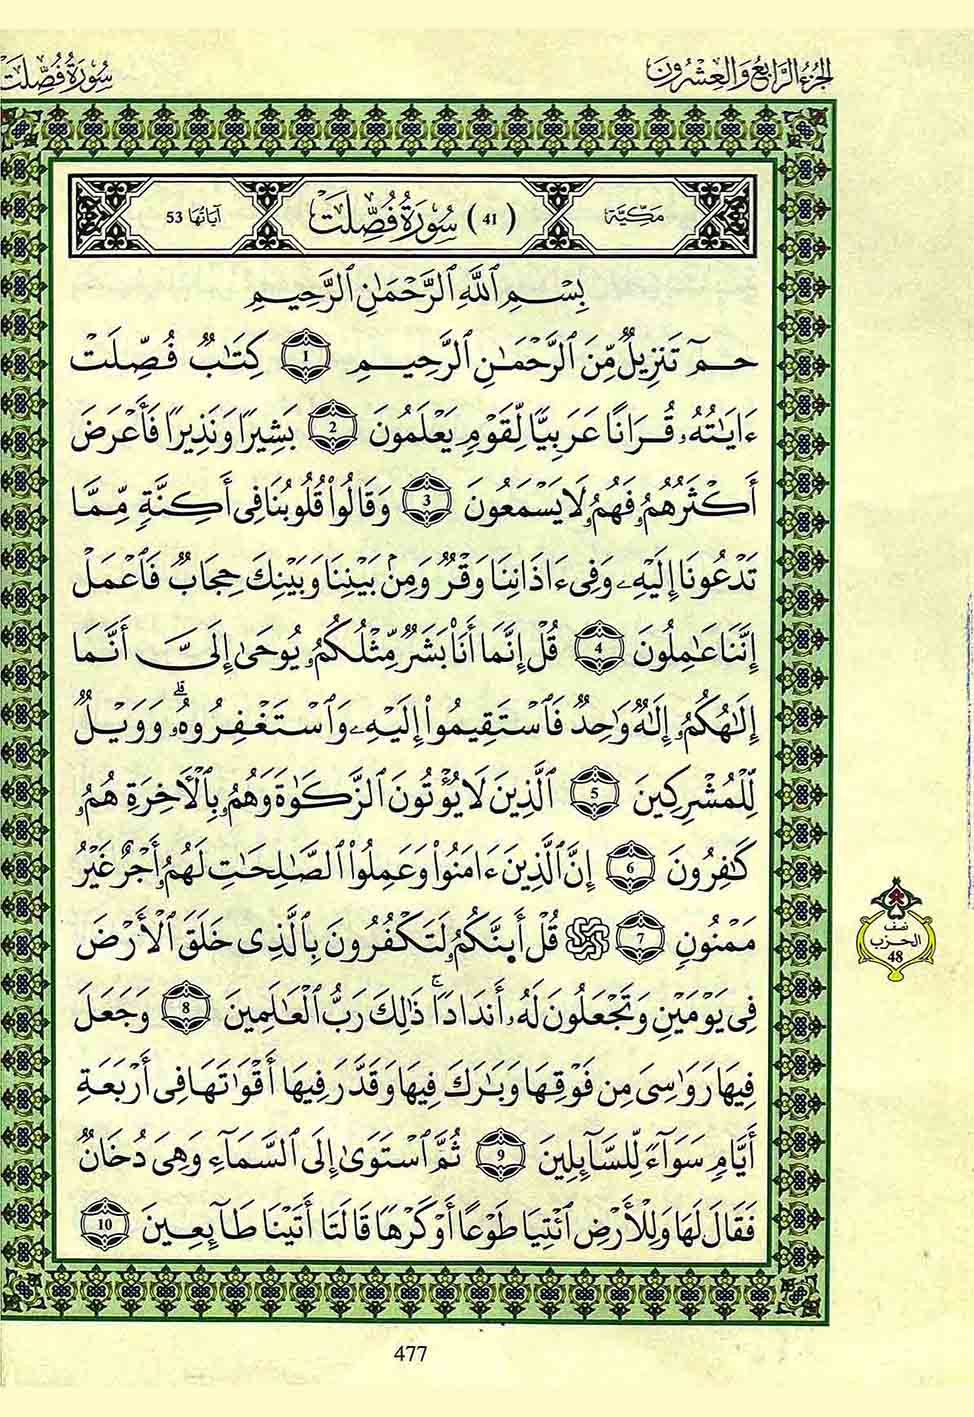 الجزء الرابع والعشرون
سورة فصلت
مكية
(41) سورة فصلت
آياتها 53
بِسْمِ اِ۬للَّهِ اِ۬لرَّحْمَٰنِ اِ۬لرَّحِيمِ
حمٓ تَنزِيلٌ مِّنَ اَ۬لرَّحْمَٰنِ اِ۬لرَّحِيمِ 1 كِتَٰبٌ فُصِّلَتْ
ءَايَٰتُهُۥ قُرَانًا عَرَبِيًّا لِّقَوْمٍ يَعْلَمُونَ 2 بَشِيرًا وَنَذِيرًا فَأَعْرَضَ
أَكْثَرُهُمُۥ فَهُمُۥ لَا يَسْمَعُونَ 3 وَقَالُواْ قُلُوبُنَا فِى أَكِنَّةٍ مِّمَّا
تَدْعُونَا إِلَيْهِۦ وَفِى ءَاذَانِنَا وَقْرٌ وَمِنۢ بَيْنِنَا وَبَيْنِكَ حِجَابٌ فَاَعْمَلْ
إِنَّنَا عَٰمِلُونَ 4 قُلِ اِنَّمَا أَنَا۠ بَشَرٌ مِّثْلُكُمُۥ يُوحَىٰ إِلَىَّ أَنَّمَا
إِلَٰهُكُمُۥ إِلَٰهٌ وَٰحِدٌ فَاَسْتَقِيمُواْ إِلَيْهِۦ وَاَسْتَغْفِرُوهُۥ وَوَيْلٌ
لِّلْمُشْرِكِينَ 5 اَ۬لَّذِينَ لَا يُؤْتُونَ اَ۬لزَّكَوٰةَ وَهُمُۥ بِالْأَخِرَةِ هُمُۥ
كَٰفِرُونَ 6 إِنَّ اَ۬لَّذِينَ ءَامَنُواْ وَعَمِلُواْ اُ۬لصَّٰلِحَٰتِ لَهُمُۥ أَجْرٌ غَيْرُ
مَمْنُونٍ 7 قُلْ أَئِنَّكُمُۥ لَتَكْفُرُونَ بِالَّذِى خَلَقَ اَ۬لْأَرْضَ
فِى يَوْمَيْنِ وَتَجْعَلُونَ لَهُۥ أَندَادًا ذَٰلِكَ رَبُّ اُ۬لْعَٰلَمِينَ 8 وَجَعَلَ
فِيهَا رَوَٰسِىَ مِن فَوْقِهَا وَبَٰرَكَ فِيهَا وَقَدَّرَ فِيهَا أَقْوَٰتَهَا فِى أَرْبَعَةِ
أَيَّامٍ سَوَآءً لِّلسَّآئِلِينَ 9 ثُمَّ اَ۪سْتَوَىٰ إِلَى اَ۬لسَّمَآءِ وَهِىَ دُخَانٌ
فَقَالَ لَهَا وَلِلْأَرْضِ اِ۪ئْتِيَا طَوْعًا أَوْ كَرْهًا قَالَتَا أَتَيْنَا طَآئِعِينَ 10
نصف
الحزب
48
477